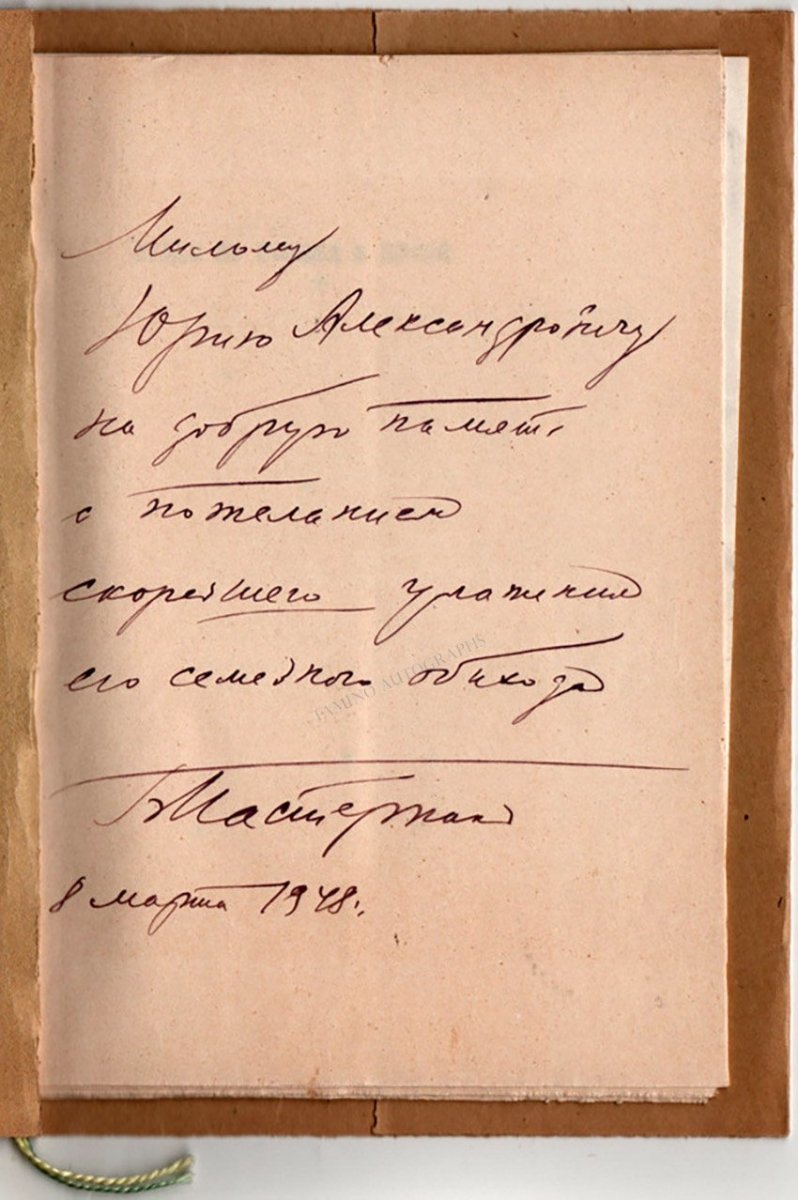 Милому
Юрию Александровичу
на добрую память
с пожеланием
скорейшего улажения
его семейного обихода
TAMINO AUTOGRAPHS
8 марта 1948 г.